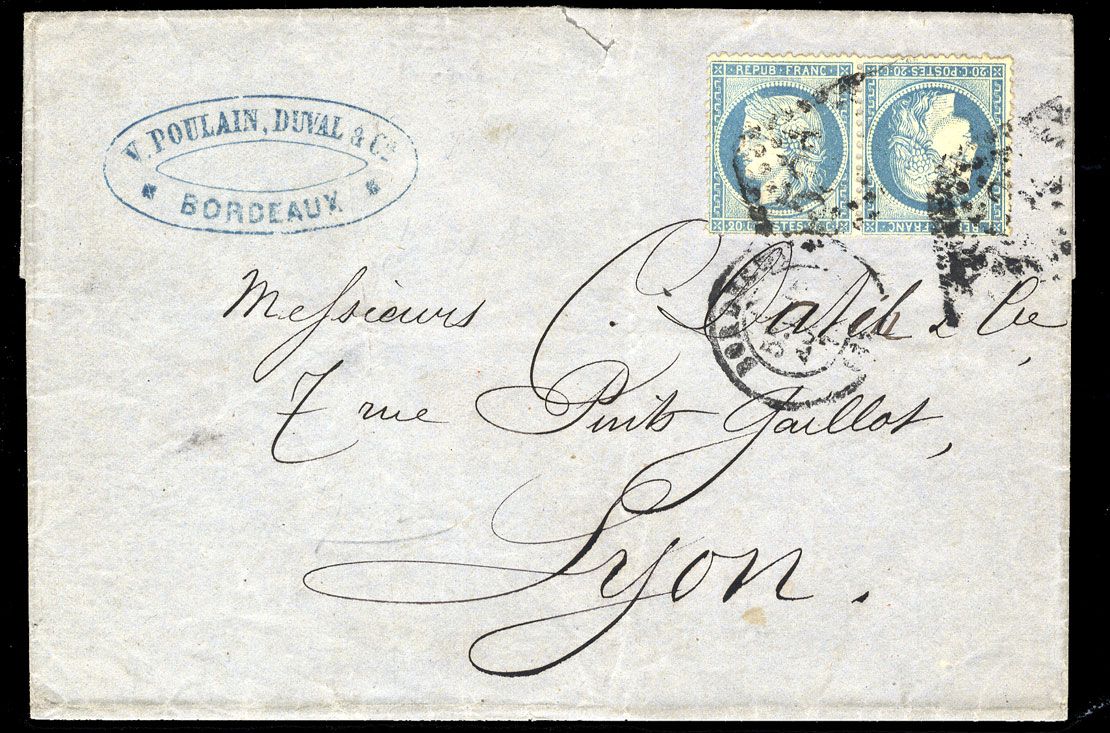 V. POULAIN, DUVAL & Cie
BORDEAUX
REPUB·FRANC·
20·C·POSTES·20·C
20·C·POSTES·20·C
REPUB·FRANC·
BORDEAUX
Messieurs C. & Cie
7 rue Puits Gaillot,
Lyon.